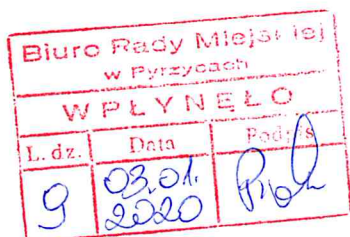 Biuro Rady Miejskiej
w Pyrzycach
WPŁYNĘŁO
L. dz. Data Podpis
9 03.01. 2020